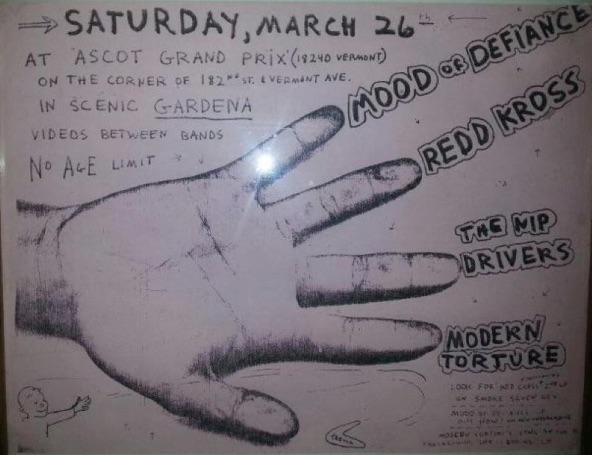 ⇒ SATURDAY, MARCH 26th ←
AT 'ASCOT GRAND PRIX' (18240 VERMONT)
ON THE CORNER OF 182ND ST. & VERMONT AVE.
IN SCENIC GARDENA
VIDEOS BETWEEN BANDS
NO AGE LIMIT
MOOD OF DEFIANCE
REDD KROSS
THE NIP
DRIVERS
MODERN
TORTURE
LOOK FOR
ON SMOKE SEVEN
MOOD OF
OUT NOW!
MODERN